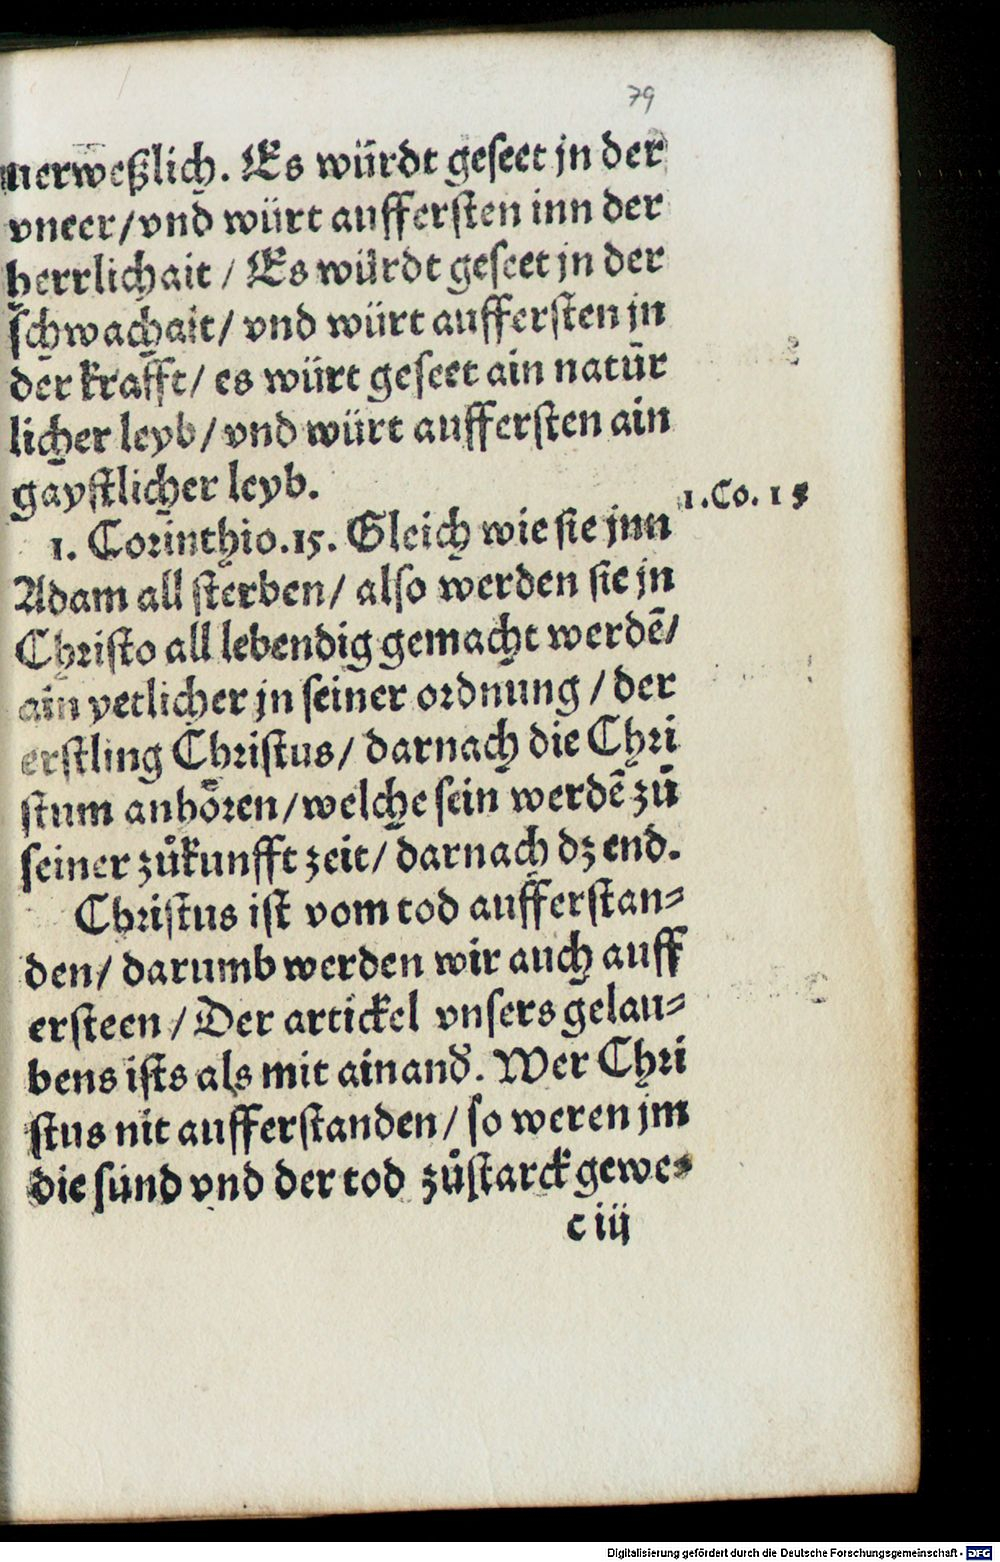 79
uerweßlich. Es würdt geseet jn der
vneer/vnd würt aufferſten inn der
herrlichait / Es würdt geſeet jn der
ſchwachait/ vnd würt aufferſten jn
der krafft/ es würt geſeet ain natür
licher leyb/vnd würt aufferſten ain
gayſtlicher leyb.
1.Co. 15
1. Corinthio.15. Gleich wie ſie jnn
Adam all ſterben/ alſo werden ſie jn
Chriſto all lebendig gemacht werdē/
ain yetlicher jn ſeiner ordnung /der
erſtling Chriſtus/ darnach die Chri
ſtum anhören/welche ſein werdē zů
ſeiner zůkunfft zeit/ darnach dz end.
Chriſtus iſt vom tod aufferſtan⸗
den/ darumb werden wir auch auff
erſteen /Der artickel vnſers gelau⸗
bens iſts als mit ainand̕. Wer Chri
ſtus nit aufferſtanden/ ſo weren jm
die ſünd vnd der tod zůſtarck gewe⸗
c iij
Digitalisierung gefördert durch die Deutsche Forschungsgemeinschaft - DFG